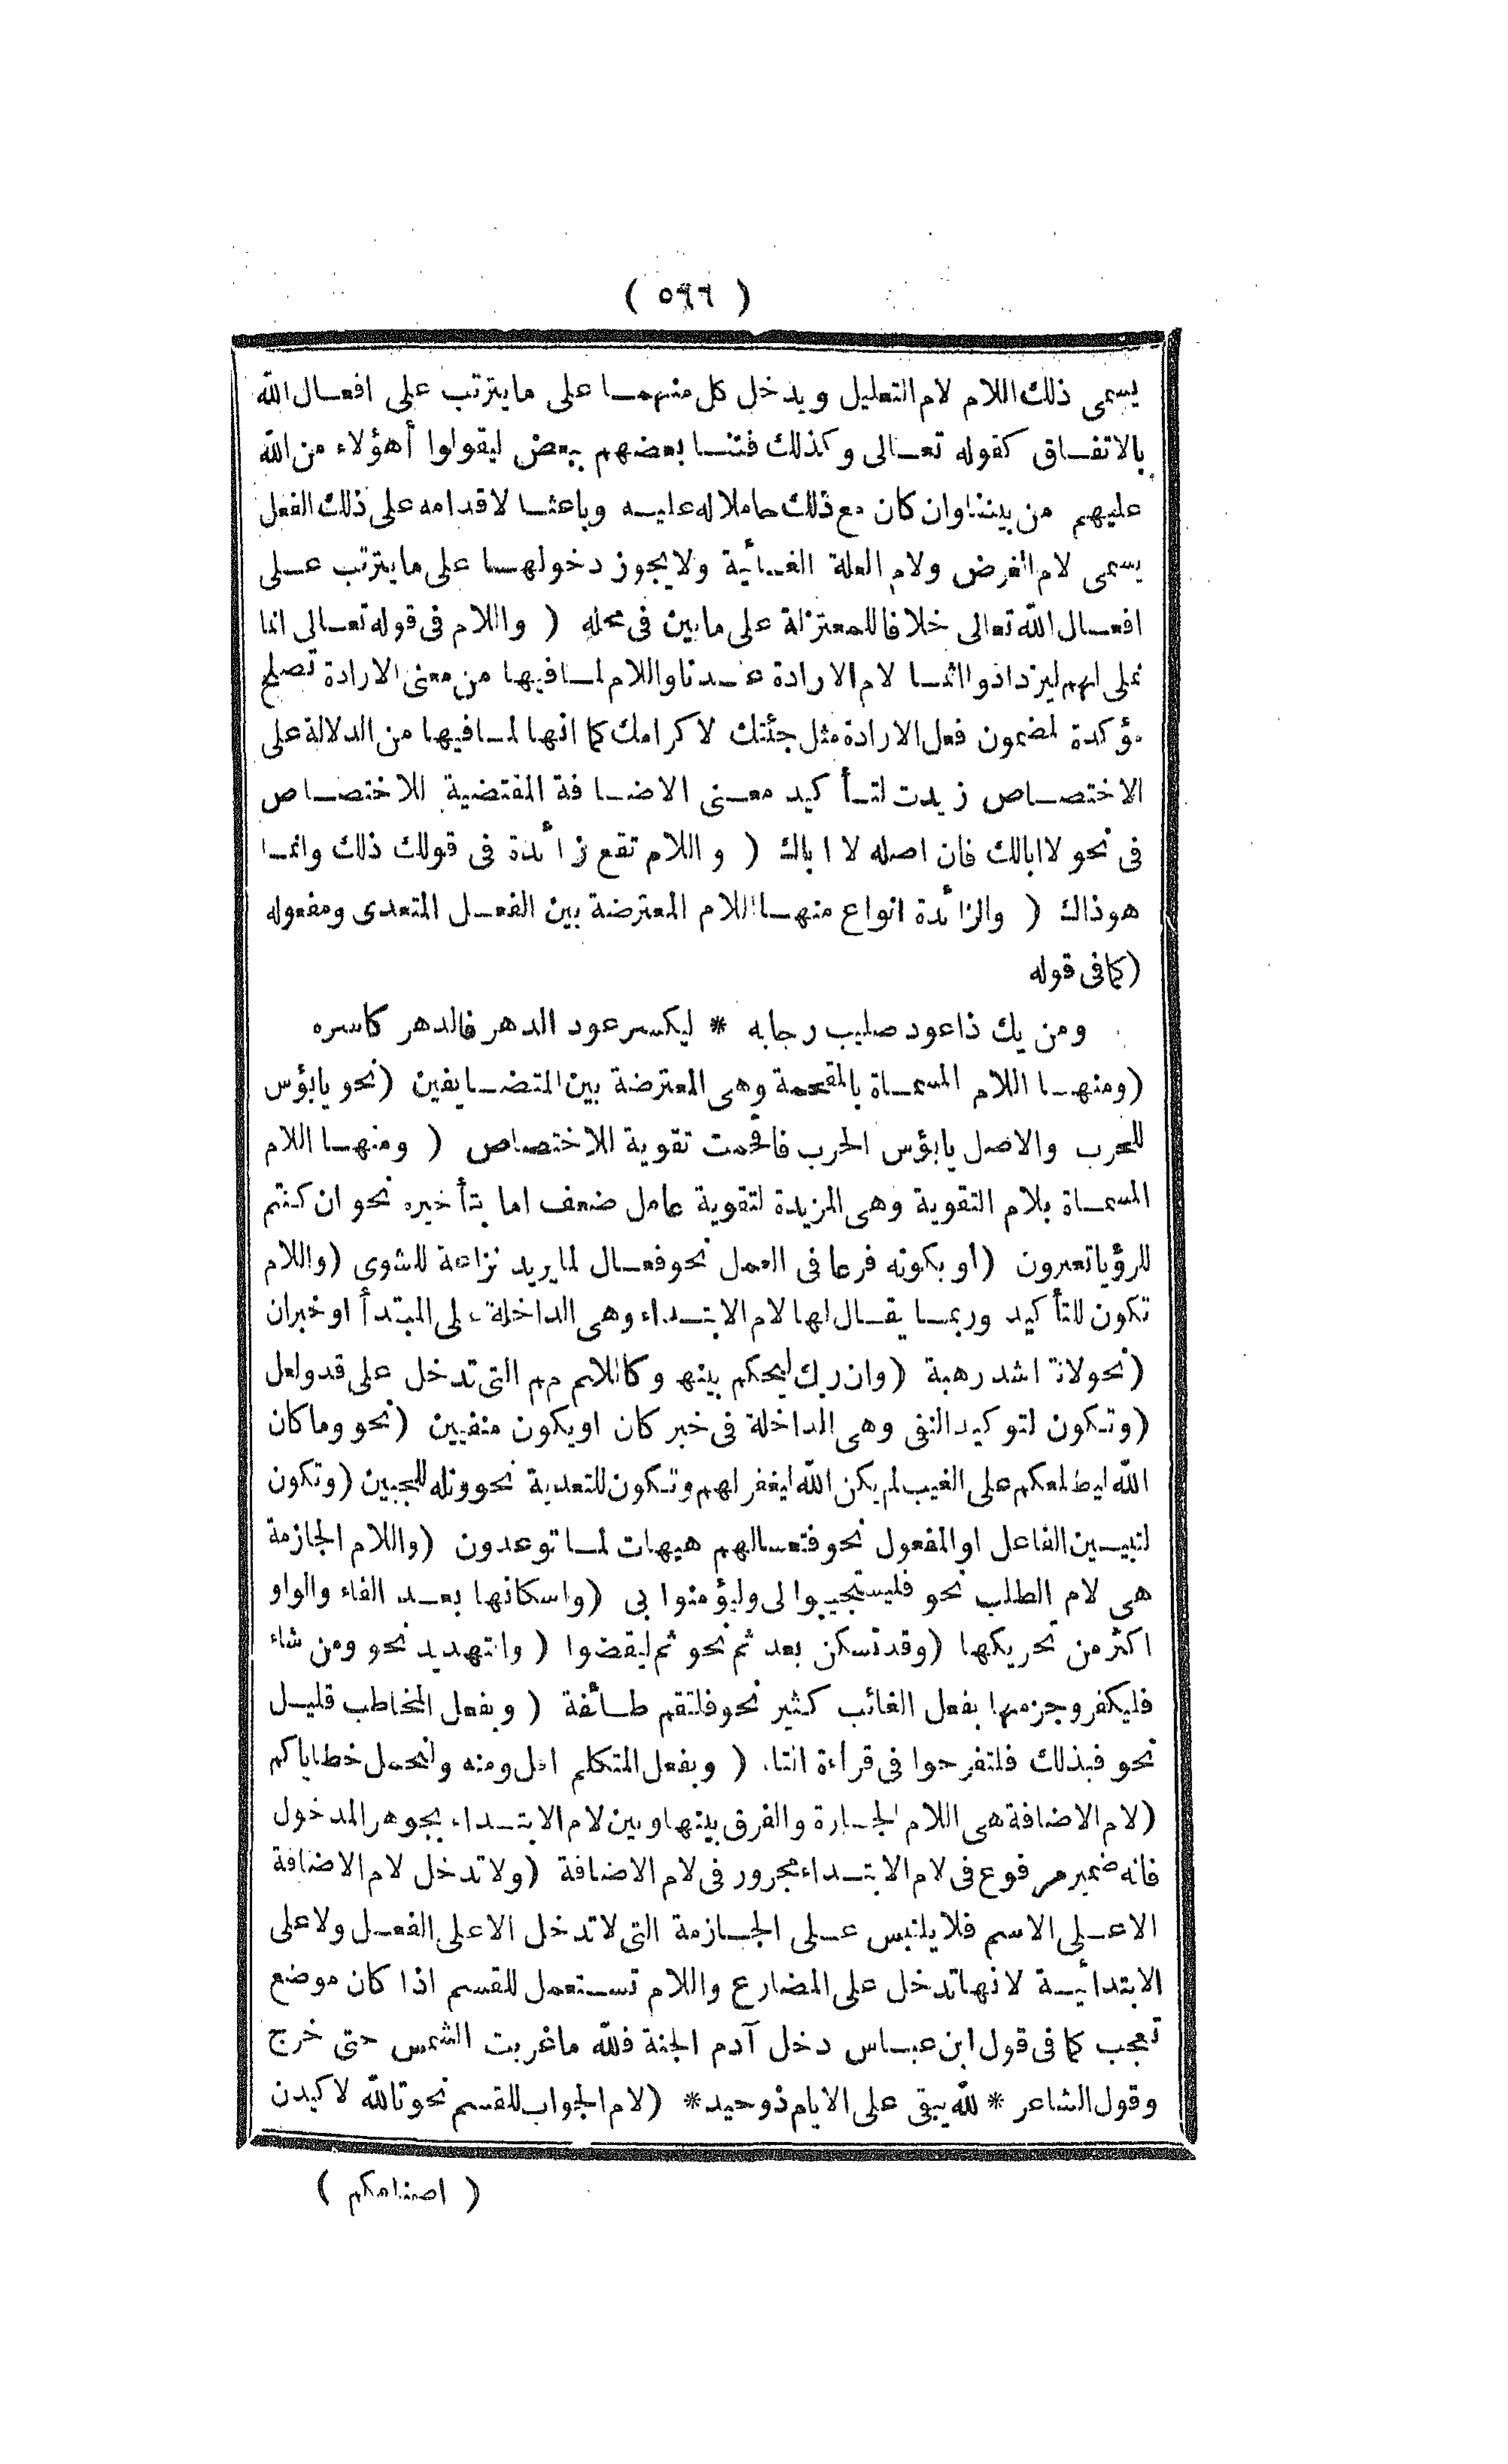 ( ٥٩٦ )
يسمى ذلك اللام لام التعليل ويدخل كل منهما على ما يترتب على افعال الله
بالاتفاق كقوله تعالى وكذلك فتنا بعضهم ببعض ليقولوا أهؤلاء من الله
عليهم من بيننا وان كان مع ذلك حاملا له عليه وباعثا لاقدامه على ذلك الفعل
يسمى لام الغرض ولام العلة الغائية ولا يجوز دخولها على ما يترتب على
افعال الله تعالى خلافا للمعتزلة على ما بين فى محله ( واللام فى قوله تعالى انما
نملى لهم ليزدادوا اثما لام الارادة عندنا واللام لما فيها من معنى الارادة تصلح
مؤكدة لمضمون فعل الارادة مثل جئتك لاكرامك كما انها لما فيها من الدلالة على
الاختصاص زيدت لتأكيد معنى الاضافة المقتضية للاختصاص
فى نحو لا ابالك فان اصله لا اباك ( واللام تقع زائدة فى قولك ذلك وانما
هو ذاك ( والزائدة انواع منها اللام المعترضة بين الفعل المتعدى ومفعوله
(كما فى قوله
ومن يك ذا عود صليب رجابه * ليكسر عود الدهر فالدهر كاسره
(ومنها اللام المسماة بالمقحمة وهى المعترضة بين المتضايفين (نحو يابؤس
للحرب والاصل يابؤس الحرب فاقحمت تقوية للاختصاص ( ومنها اللام
المسماة بلام التقوية وهى المزيدة لتقوية عامل ضعف اما بتأخيره نحو ان كنتم
للرؤيا تعبرون (او بكونه فرعا فى العمل نحو فعال لما يريد نزاعة للشوى (واللام
تكون للتأكيد وربما يقال لها لام الابتداء وهى الداخلة على المبتدأ او خبر ان
(نحو لانتم اشد رهبة (وان ربك ليحكم بينهم وكاللام التى تدخل على قد ولعل
(وتكون لتوكيد النفى وهى الداخلة فى خبر كان او يكون منفيين (نحو وما كان
الله ليطلعكم على الغيب لم يكن الله ليغفر لهم وتكون للتعدية نحو وتله للجبين (وتكون
لتبيين الفاعل او المفعول نحو فتعسالهم هيهات لما توعدون (واللام الجازمة
هى لام الطلب نحو فليستجيبوا لى وليؤمنوا بى (واسكانها بعد الفاء والواو
اكثر من تحريكها (وقد تسكن بعد ثم نحو ثم ليقضوا ( والتهديد نحو ومن شاء
فليكفر وجزمها بفعل الغائب كثير نحو فلتقم طائفة ( وبفعل المخاطب قليل
نحو فبذلك فلتفرحوا فى قراءة التاء ( وبفعل المتكلم اقل ومنه ولنحمل خطاياكم
(لام الاضافة هى اللام الجارة والفرق بينها وبين لام الابتداء بجوهر المدخول
فانه ضمير مرفوع فى لام الابتداء مجرور فى لام الاضافة (ولا تدخل لام الاضافة
الا على الاسم فلا يلتبس على الجازمة التى لا تدخل الا على الفعل ولا على
الابتدائية لانها تدخل على المضارع واللام تستعمل للقسم اذا كان موضع
تعجب كما فى قول ابن عباس دخل آدم الجنة فلله ما غربت الشمس حتى خرج
وقول الشاعر * لله يبقى على الايام ذو حيد * (لام الجواب للقسم نحو تالله لاكيدن
( اصنامكم )